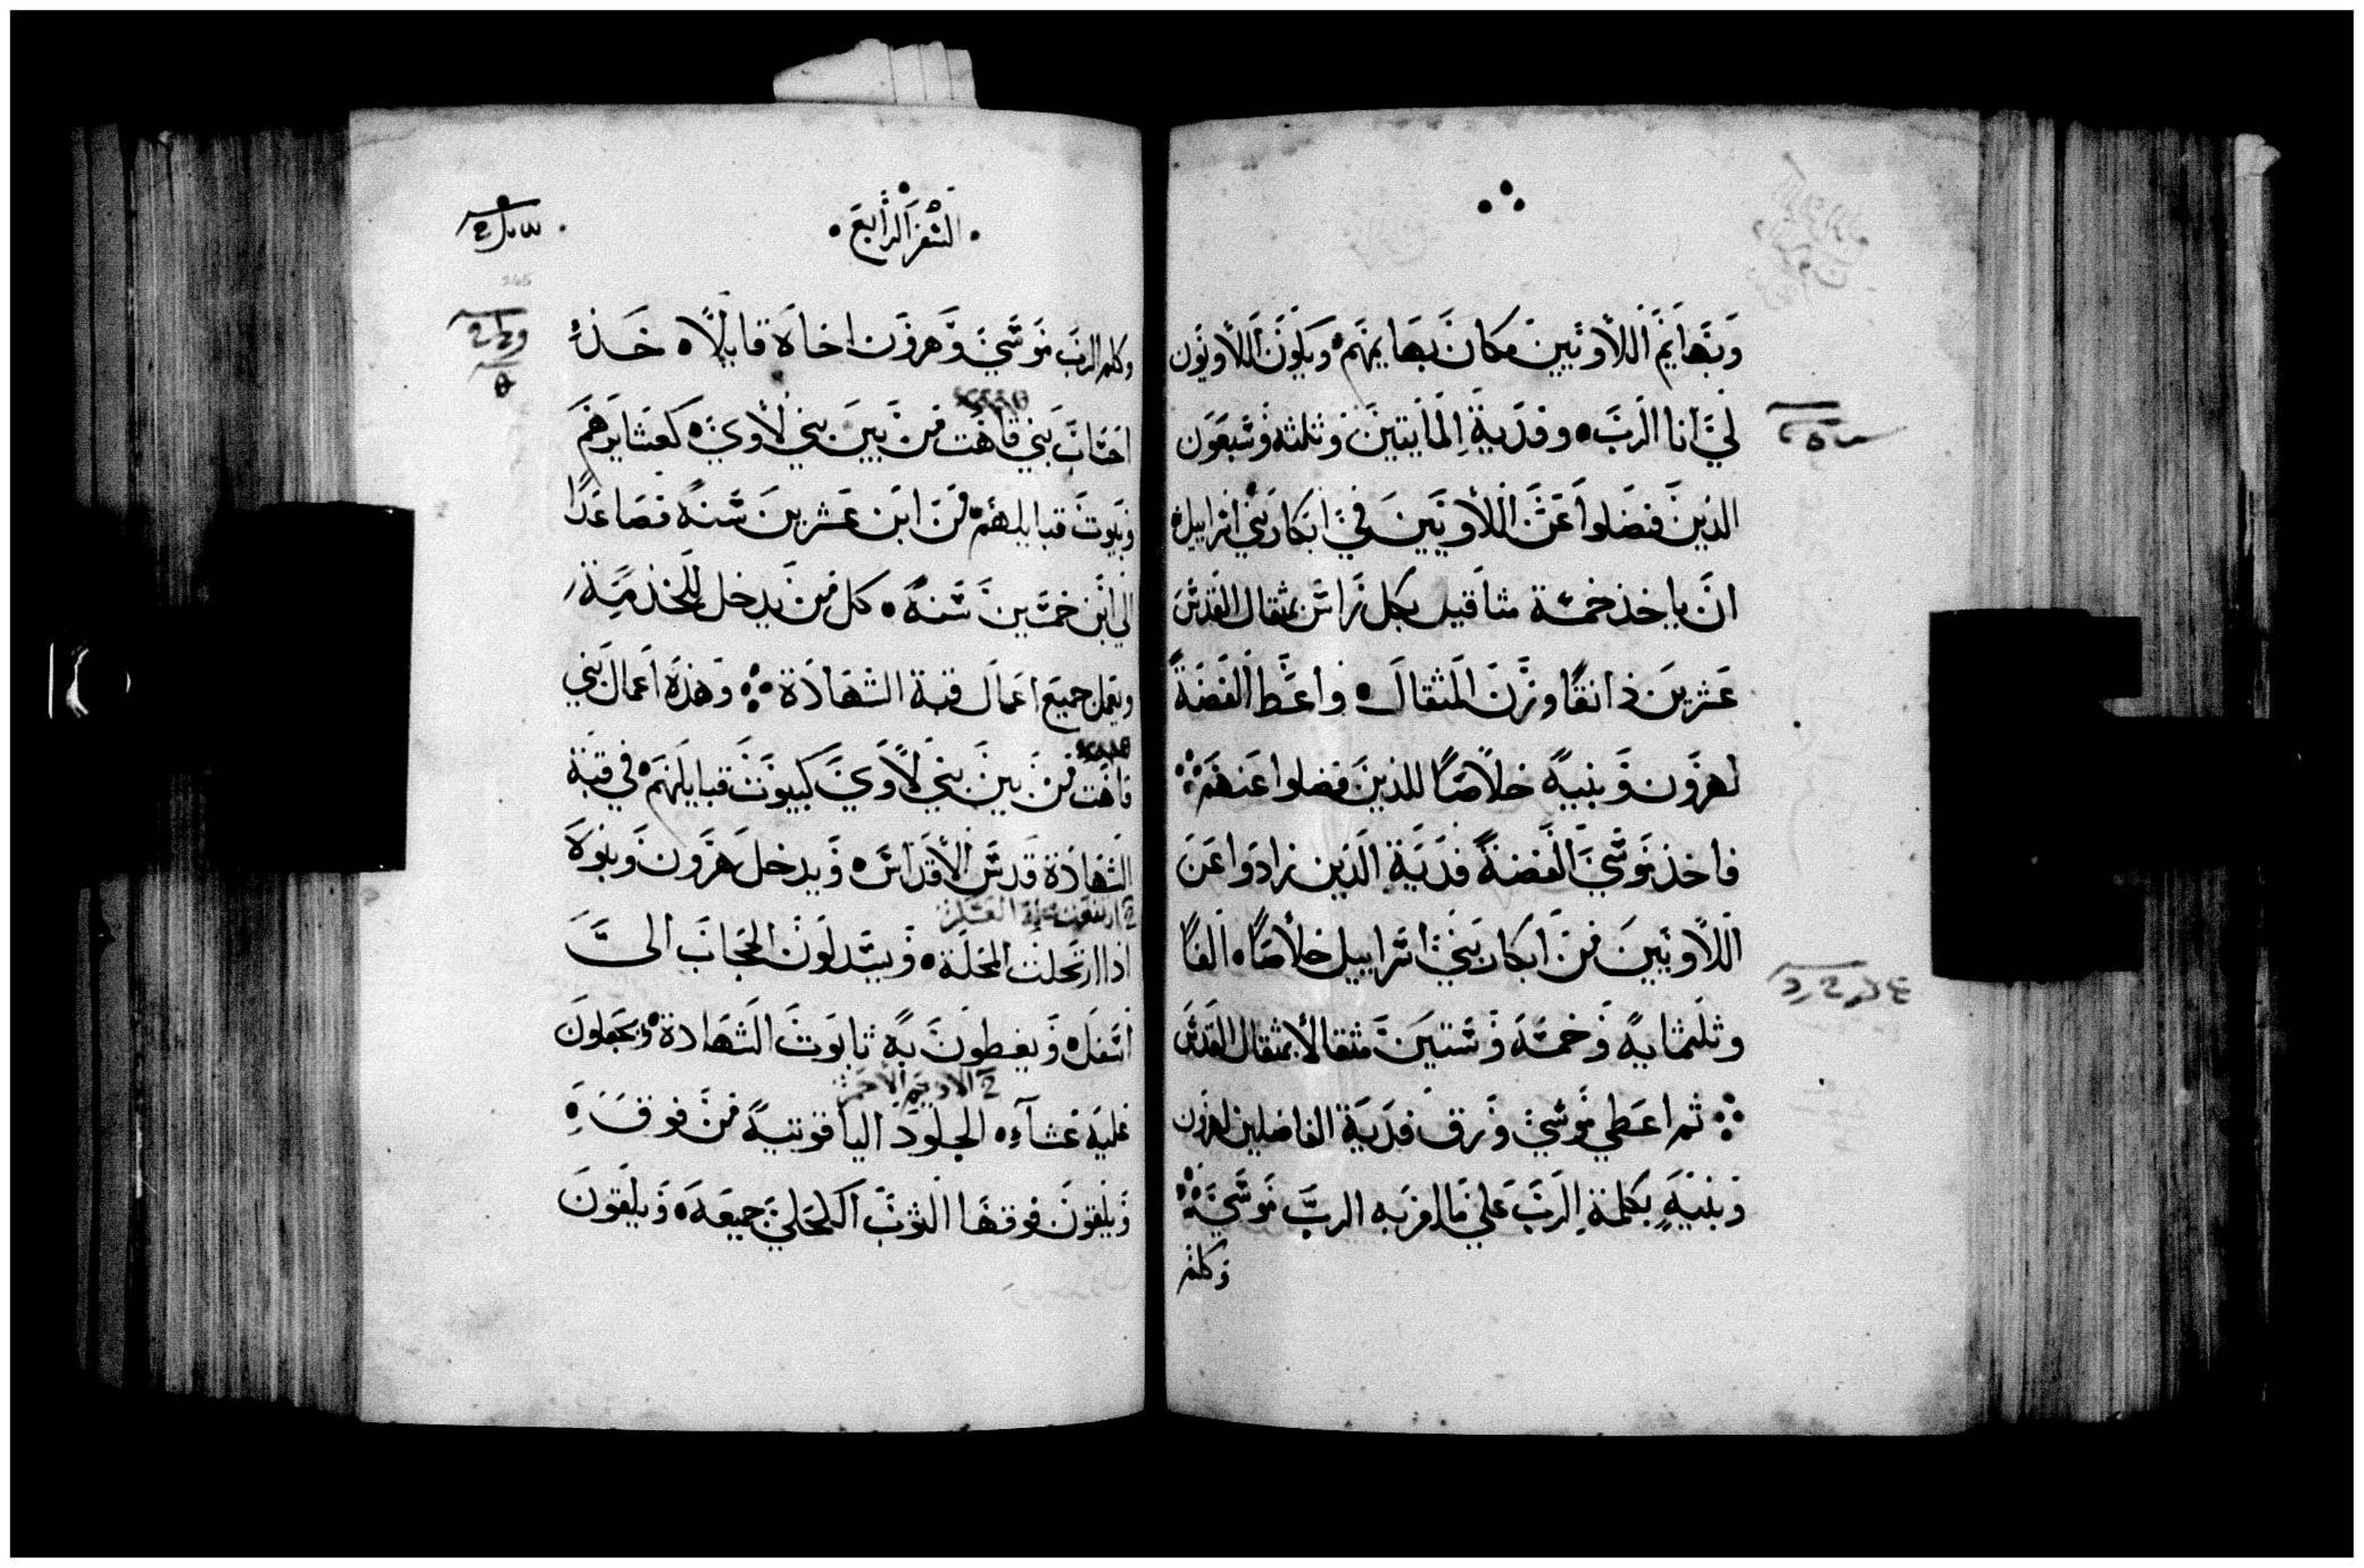 وبهايم اللاويين مكان بهايمهم ويكون اللاويون
لي انا الرب وفدية المايتين وثلثه وسبعون
الذين فضلوا عن اللاويين في ابكار بني اسراييل
ان ياخذ خمسة مثاقيل بكل راس بمثقال القدس
عشرين دانقا وزن المثقال واعط الفضة
لهرون وبنيه خلاصا للذين فضلوا عنهم
فاخذ موسي الفضة فدية الذين زادوا عن
اللاويين من ابكار بني اسراييل خلاصا الفا
وثلثمايه وخمسه وستين مثقالا بمثقال القدس
ثم اعطي موسي ورق فدية الفاضلين لهرون
وبنيه بكلمة الرب علي ما امر به الرب موسي
وكلم
السفر الرابع
وكلم الرب موسي وهرون اخاه قايلا خذ
احساب بني قاهت من بين بني لاوي كعشايرهم
وبيوت قبايلهم من ابن عشرين سنه فصاعدا
الي ابن خمسين سنه كل من يدخل للخدمة
ويعمل جميع اعمال قبة الشهادة وهذه اعمال بني
قاهت من بين بني لاوي كبيوت قبايلهم في قبة
الشهادة قدس الاقداس ويدخل هرون وبنوه
اذا ارتحلت المحلة ويسدلون الحجاب الي
اسفل ويغطون به تابوت الشهادة ويجعلون
الاديم الاحمر
عليه غشاء الجلود الياقوتيه من فوقه
ويلقون فوقها الثوب الكحلي جميعه ويلقون